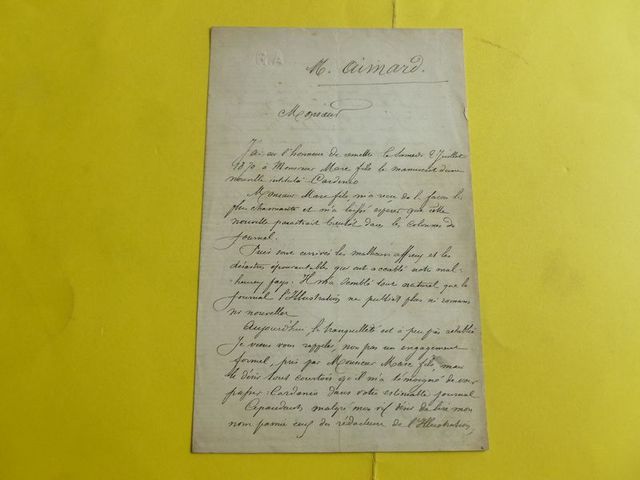 M. Aimard.
Monsieur
J'ai eu l'honneur de remettre le Samedi 2 Juillet
1870 à Monsieur Marc fils le manuscrit d'une
nouvelle intitulé: Cardenio
Monsieur Marc fils m'a reçu de la façon la
plus charmante et m'a laissé espérer que cette
nouvelle paraîtrait bientôt dans les colonnes du
Journal.
Puis sont arrivés les malheurs affreux et les
désastres épouvantables qui ont accablé notre mal-
heureux pays. Il m'a semblé tout naturel que le
Journal l'Illustration ne publiât plus ni romans
ni nouvelles
Aujourd'hui la tranquillité est à peu près rétablie
Je viens vous rappeler, non pas un engagement
formel, pris par Monsieur Marc fils, mais
le désir tout courtois qu'il m'a témoigné de voir
Cardenio dans votre estimable journal
Cependant, malgré mon vif désir de lire mon
nom parmi ceux des rédacteurs de l'Illustration,